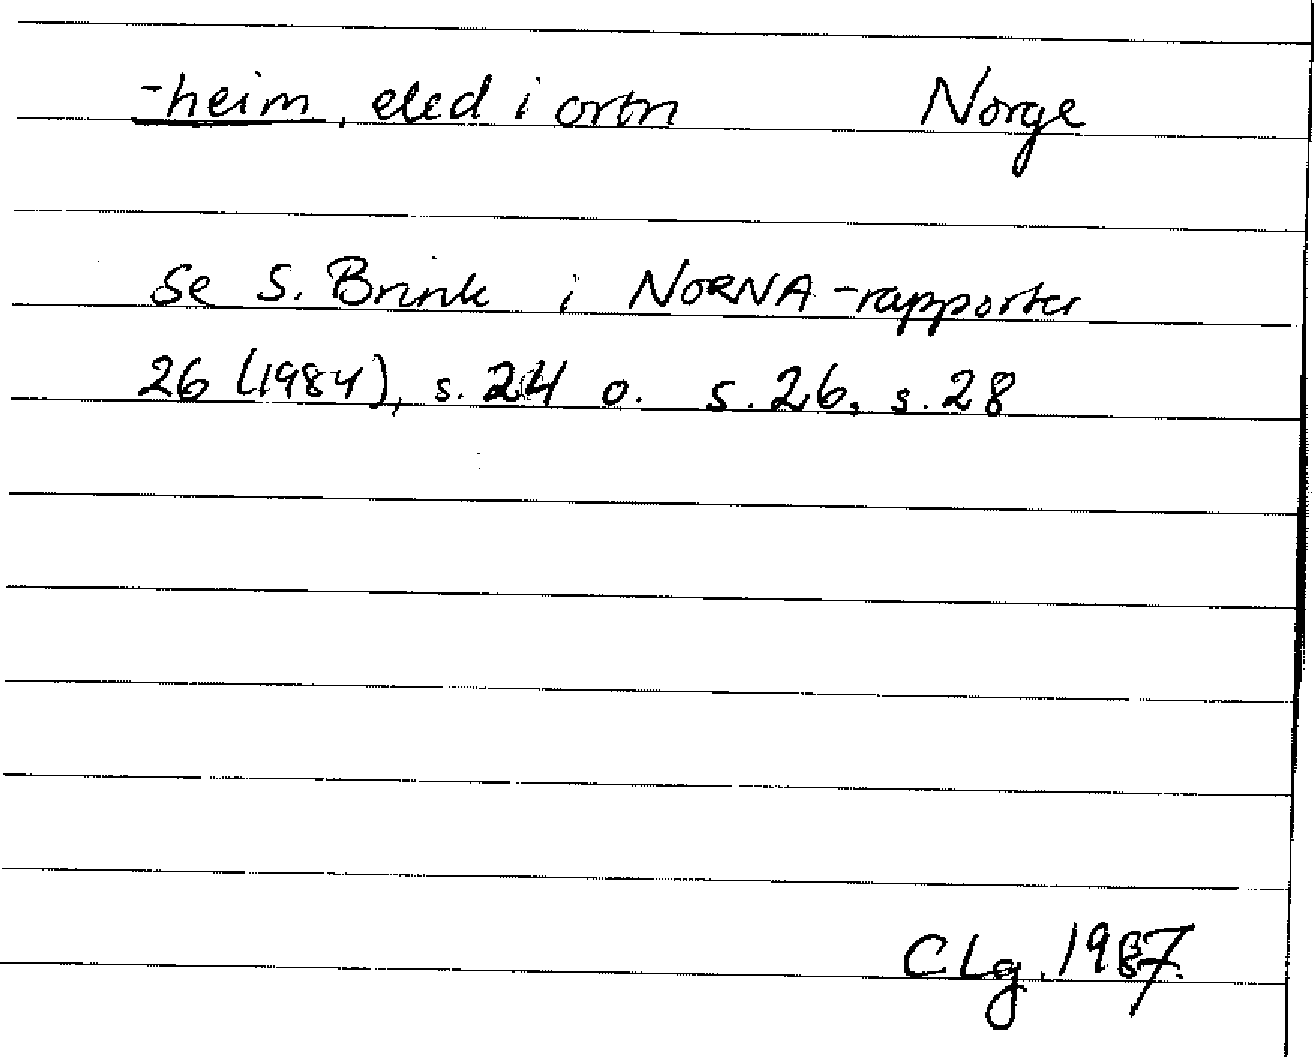 -heim, eled i ortn Norge
Se S. Brink i NORNA-rapporter
26 (1984), s. 24 o. s. 26, s. 28
CLg. 1987